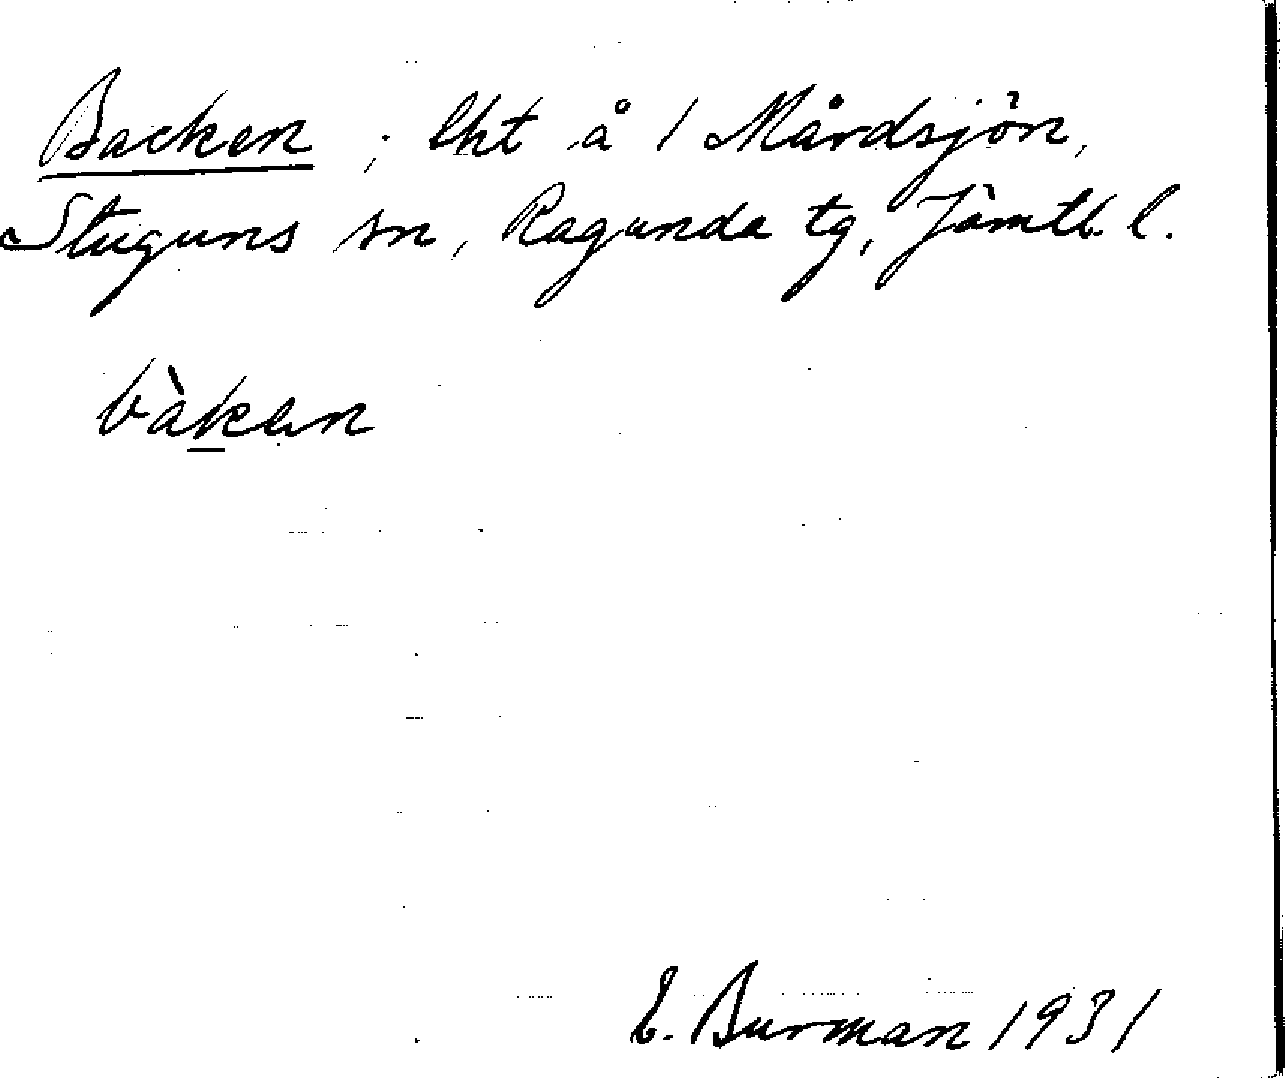 Backen ; lht å 1 Mårdsjön,
Stuguns sn, Ragunda tg, Jämtl. l.
bàken
E. Burman 1931